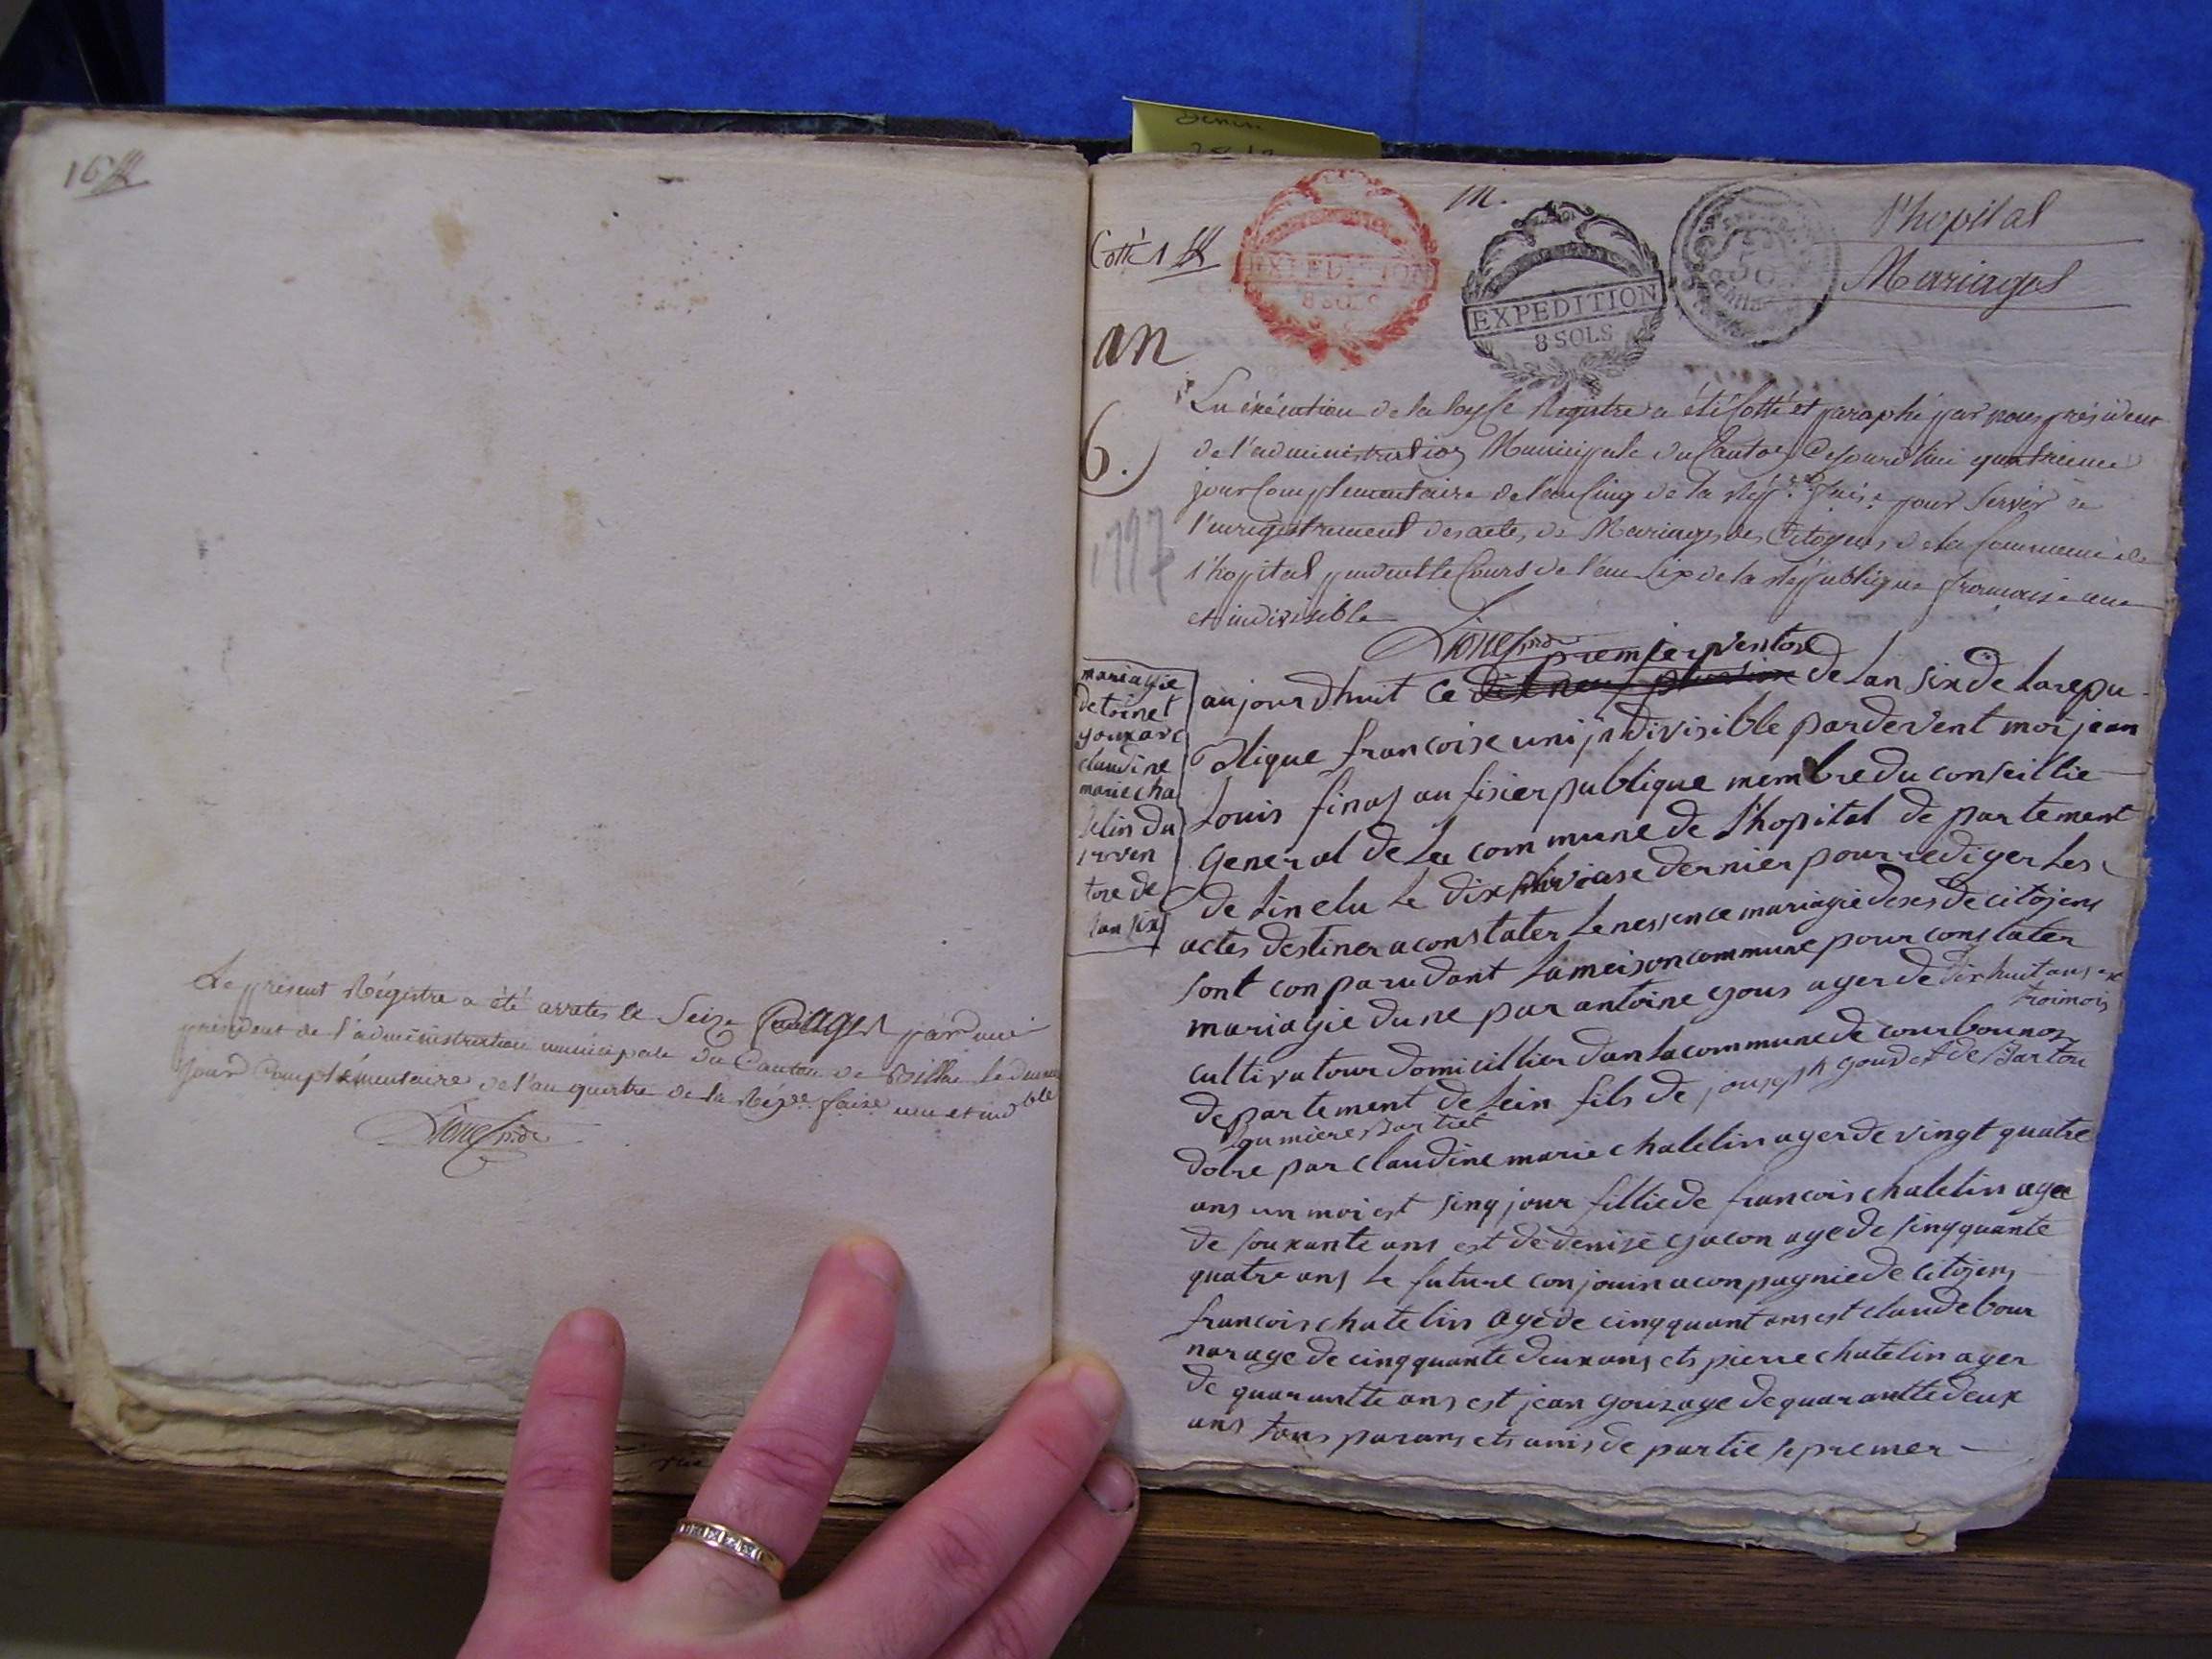 16
Le présent Régistre a été arreté à Seize par moi
président de l'administration municipale du Canton de
jour Complémentaire de l'an quatre de la Rép.que fcaise une et ind.ble
m.
l'hopital
Mariages
Cotté 1
EXPEDITION
8 SOLS
EXPEDITION
8 SOLS
50
an
6.
1797
En éxécution de la loy Ce Registre a été Cotté et paraphé par nous président
de l'administration Municipale du Canton quatrieme
jour Complementaire de l'an Cinq de la Rép. fcaise pour Servir à
l'enregistrement des actes de Mariages des Citoyens de la Commune de
l'hopital pendant le Cours de l'an Six de la République francaise une
et indivisible
mariagie
de toinet
gouxavec
claudine
marie cha
telin du
1er ven
tose de
lan six
premier ventose
aujourdhuit ce dixneuf pluviose de Lan six de Larepu
blique francoise uni jndivisible pardevent moi jean
Louis finas aufisier publique membre du conseillie
General de La commune de Lhopital departement
de Lin elu Le dix pluviose dernier pour rediger Les
actes destiner a constater Lenessence mariagie deses de citojens
sont conparu dant Lameison commune pour constater
mariagie dune par antoine gous ager de dix huit ans et
troi mois
cultivatour domicillier dans La commune de courbounos
departement de Lein fils de jouseph goudet de
dotre par claudine marie chatelin ager de vingt quatre
ans un moi est sinq jour fillie de francois chatelin age
de souxante ans est de denise gacon age de sinqquante
quatre ans Le future conjouin aconpagnie de citojens
francois chatelin age de cinqquant ans est claude bour
nar age de cinqquante deux ans ets pierre chatelin ager
de quarantte ans est jean gous age de quarantte deux
ans tous parans ets amis de partie le premer